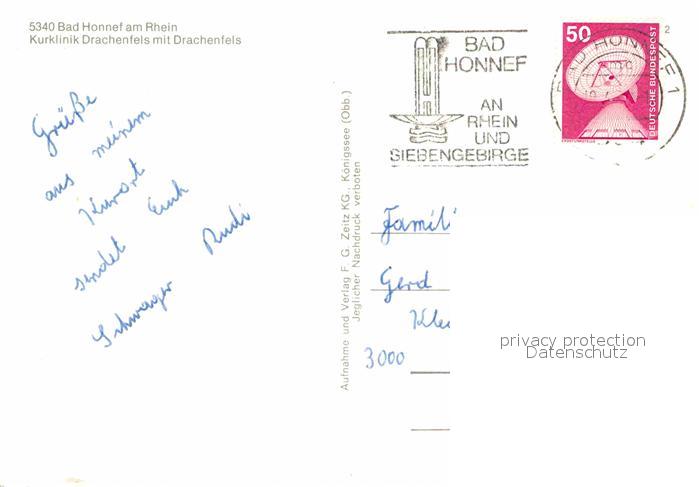 5340 Bad Honnef am Rhein
Kurklinik Drachenfels mit Drachenfels
Grüße
aus meinem
Kurort
sendet Euch
Schwager Rudi
Aufnahme und Verlag F. G. Zeitz KG., Königssee (Obb.)
Jeglicher Nachdruck verboten
BAD
HONNEF
AN
RHEIN
UND
SIEBENGEBIRGE
50
DEUTSCHE BUNDESPOST
BAD HONNEF 1
2
Famili
Gerd
Kle
3000
privacy protection
Datenschutz